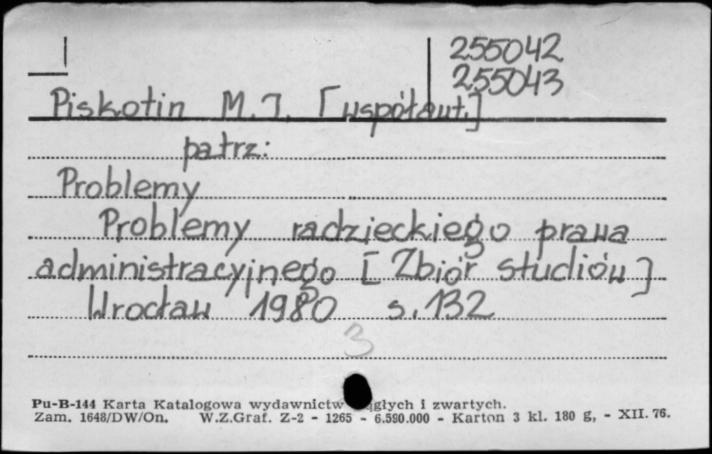 255042
255043
Piskotin M.I. [współaut.]
patrz:
Problemy
Problemy radzieckiego prawa
administracyjnego [Zbiór studiów]
Wrocław 1980 s. 132
3
Pu-B-144 Karta Katalogowa wydawnictw ągłych i zwartych.
Zam. 1648/DW/On. W.Z.Graf. Z-2 - 1265 - 6.590.000 - Karton 3 kl. 180 g, - XII. 76.